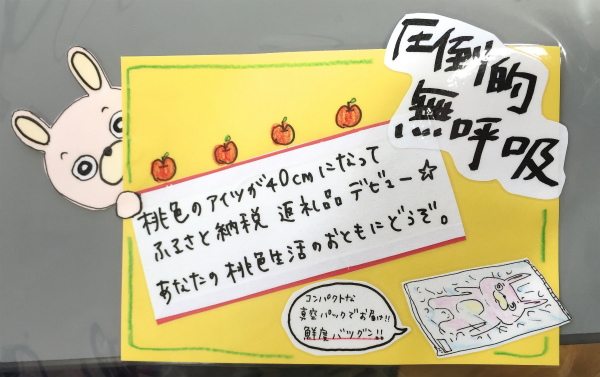 圧倒的
無呼吸
桃色のアイツが40cmになって
ふるさと納税 返礼品デビュー☆
あなたの桃色生活のおともにどうぞ。
コンパクトな
真空パックでお届け!!
鮮度バツグン!!